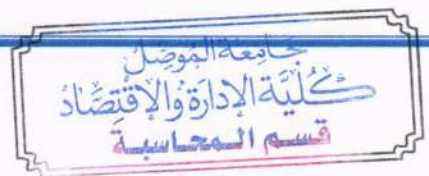 جَامِعَة المُوصِلْ
كُلِّيَّة الإدَارَة وَالإقْتِصَادْ
قسم المحاسبة